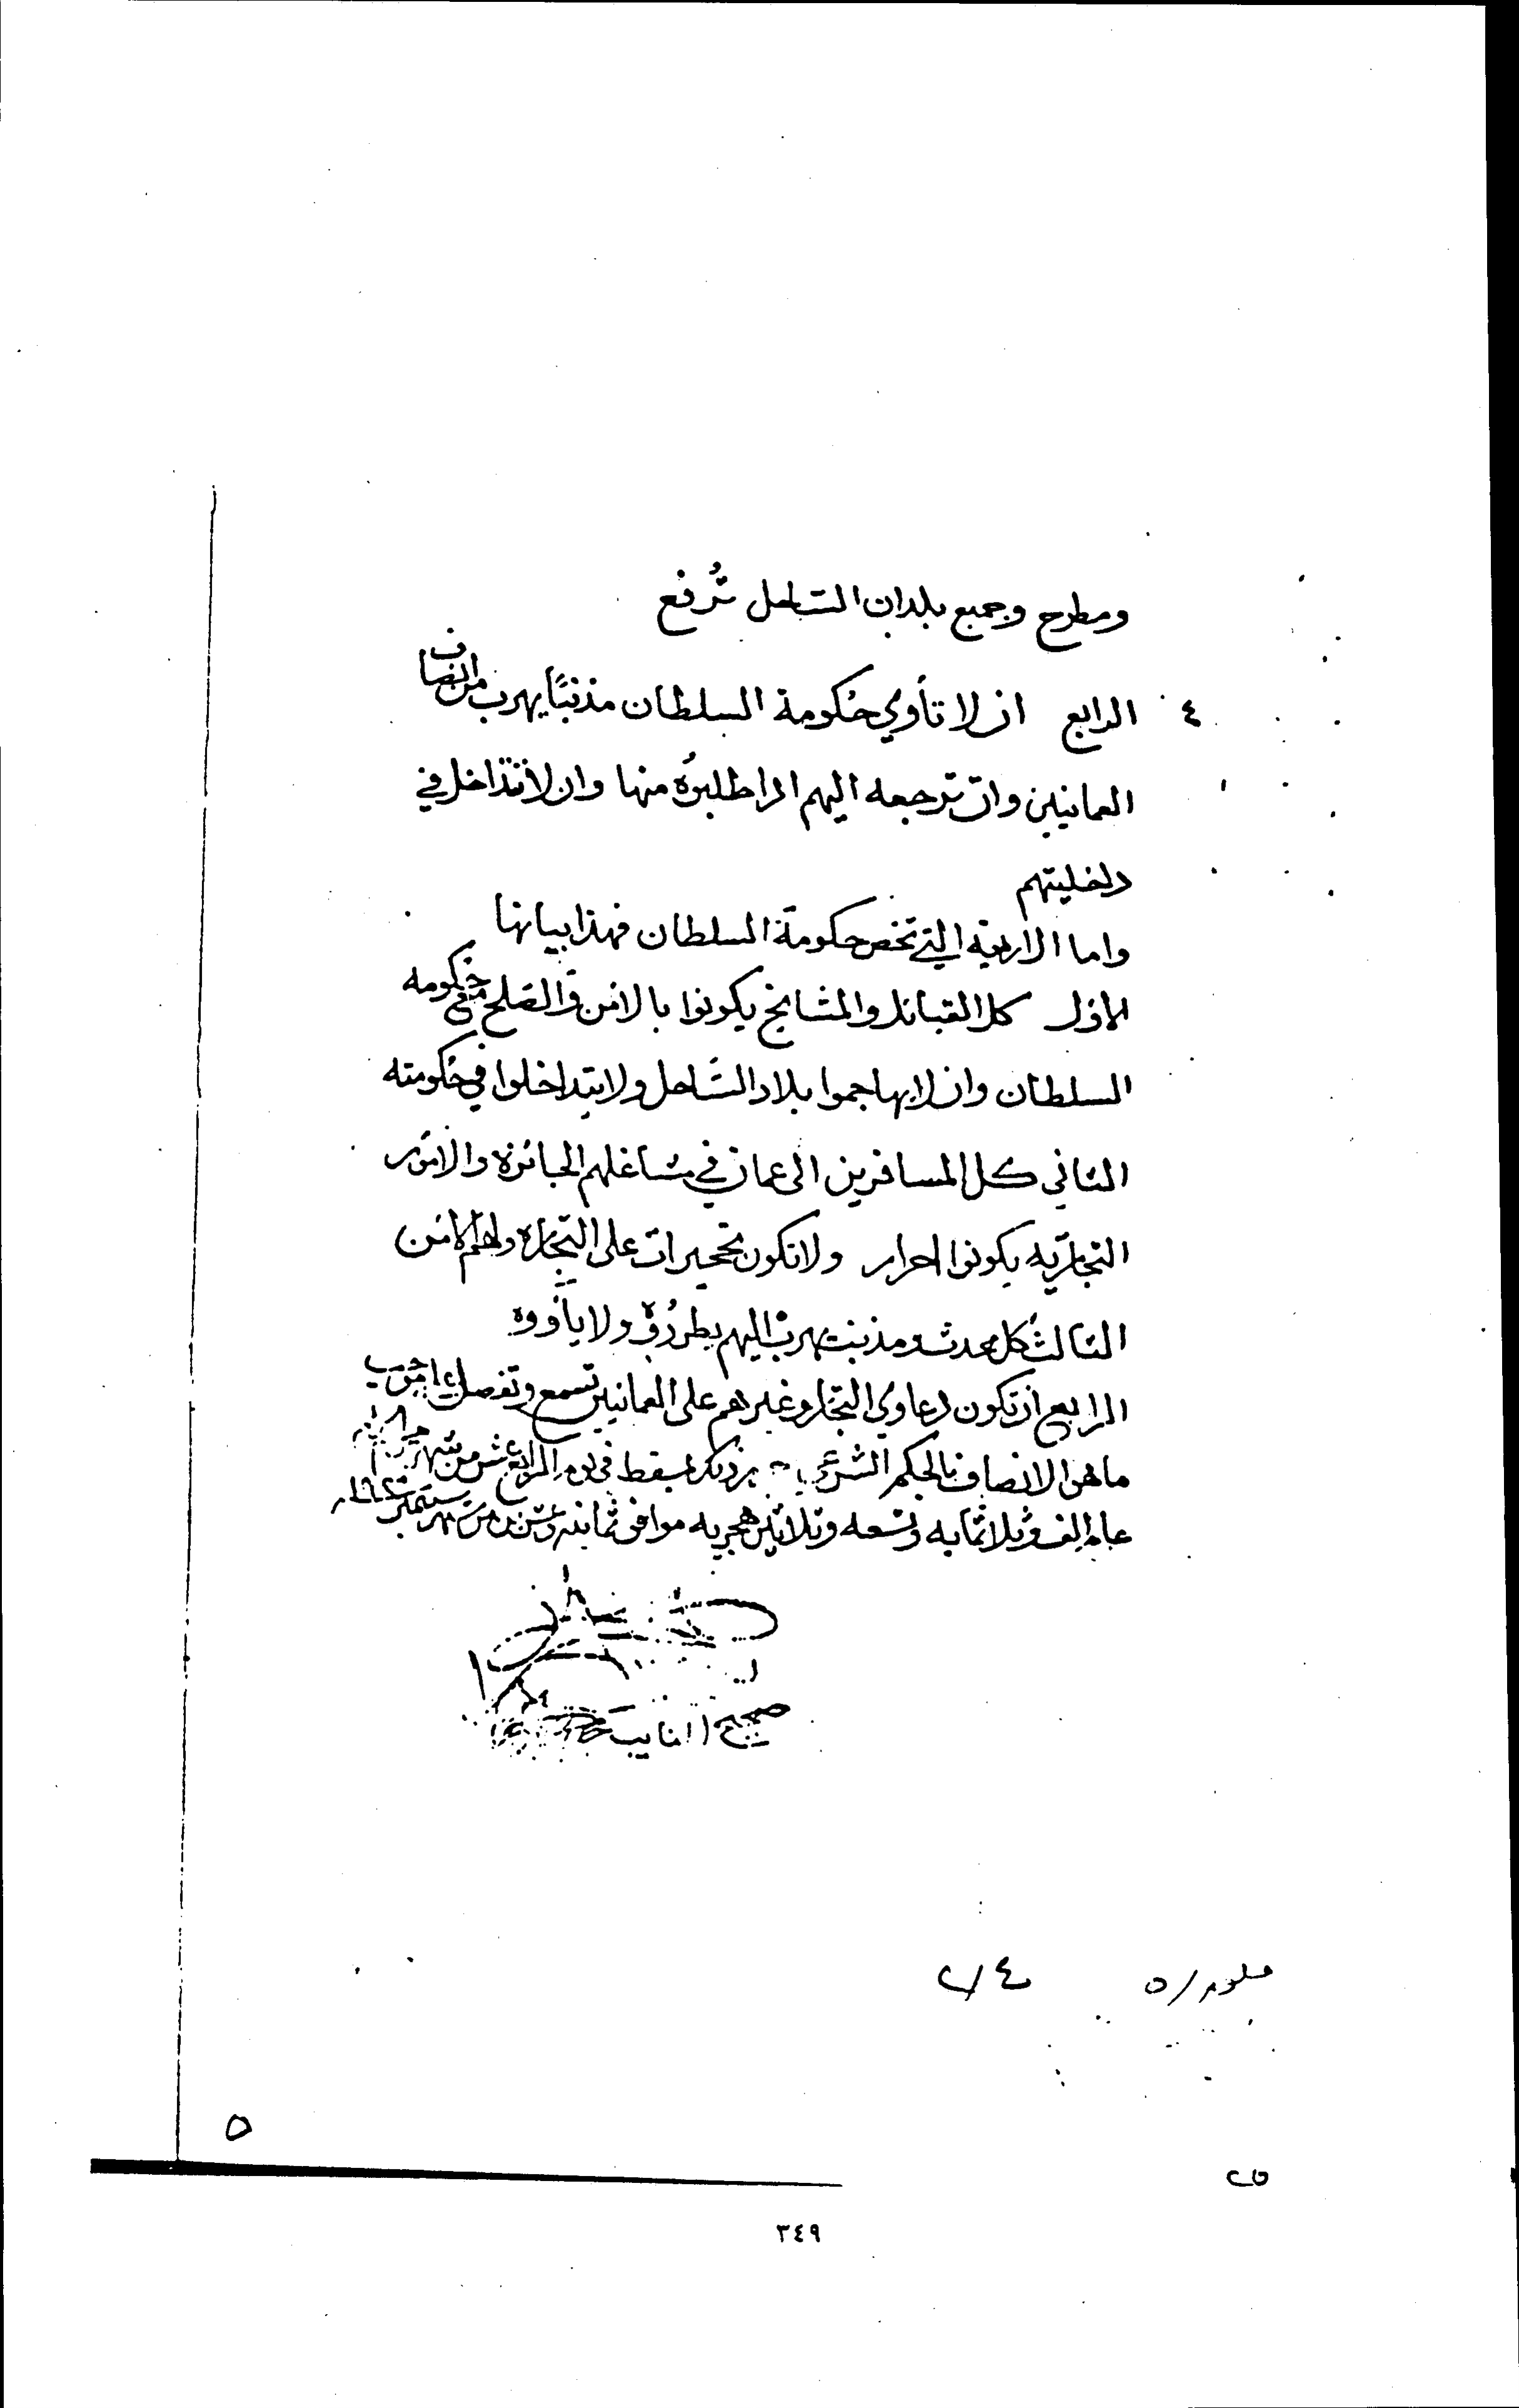 ومطرح وجميع بلدان الساحل تُرفع
٤ الرابع ان لا تأوي حكومة السلطان مذنبًا يهرب من انصاف
العمانيين وان ترجعه اليهم اذا طلبوُه منها وان لا تتداخل في
داخليتهم
واما الاربعة التي تخص حكومة السلطان فهذا بيانها
الاول كل القبائل والمشايخ يكونوا بالامن والصلح مع حكومه
السلطان وان لا يهاجموا بلاد الساحل ولا يتداخلوا في حكومته
الثاني كل المسافرين الى عمان في مشاغلهم الجائزة والامور
التجاريه يكونوا احرار ولا تكون تحجيرات على التجاره ولهم الامن
الثالث كل محدث ومذنب يهرب اليهم يطردُوه ولا يأووه
الرابع ان تكون دعاوي التجار وغيرهم على العمانيين تسمع وتفصل على موجب
ما هو الانصاف بالحكم الشرعي بمسقط في يوم الرابع عشر من شهر
عام الف وثلاثمايه وتسعه وثلاثين هجريه موافق ثمانيه وعشرين من شهر سبتمبر
صحيح انا نايب
٥
٣٤٩